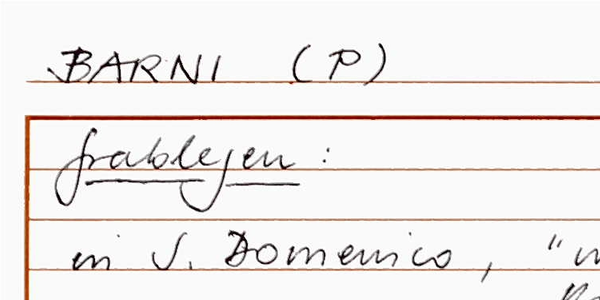 BARNI (P)
Grablegen:
in S. Domenico, "